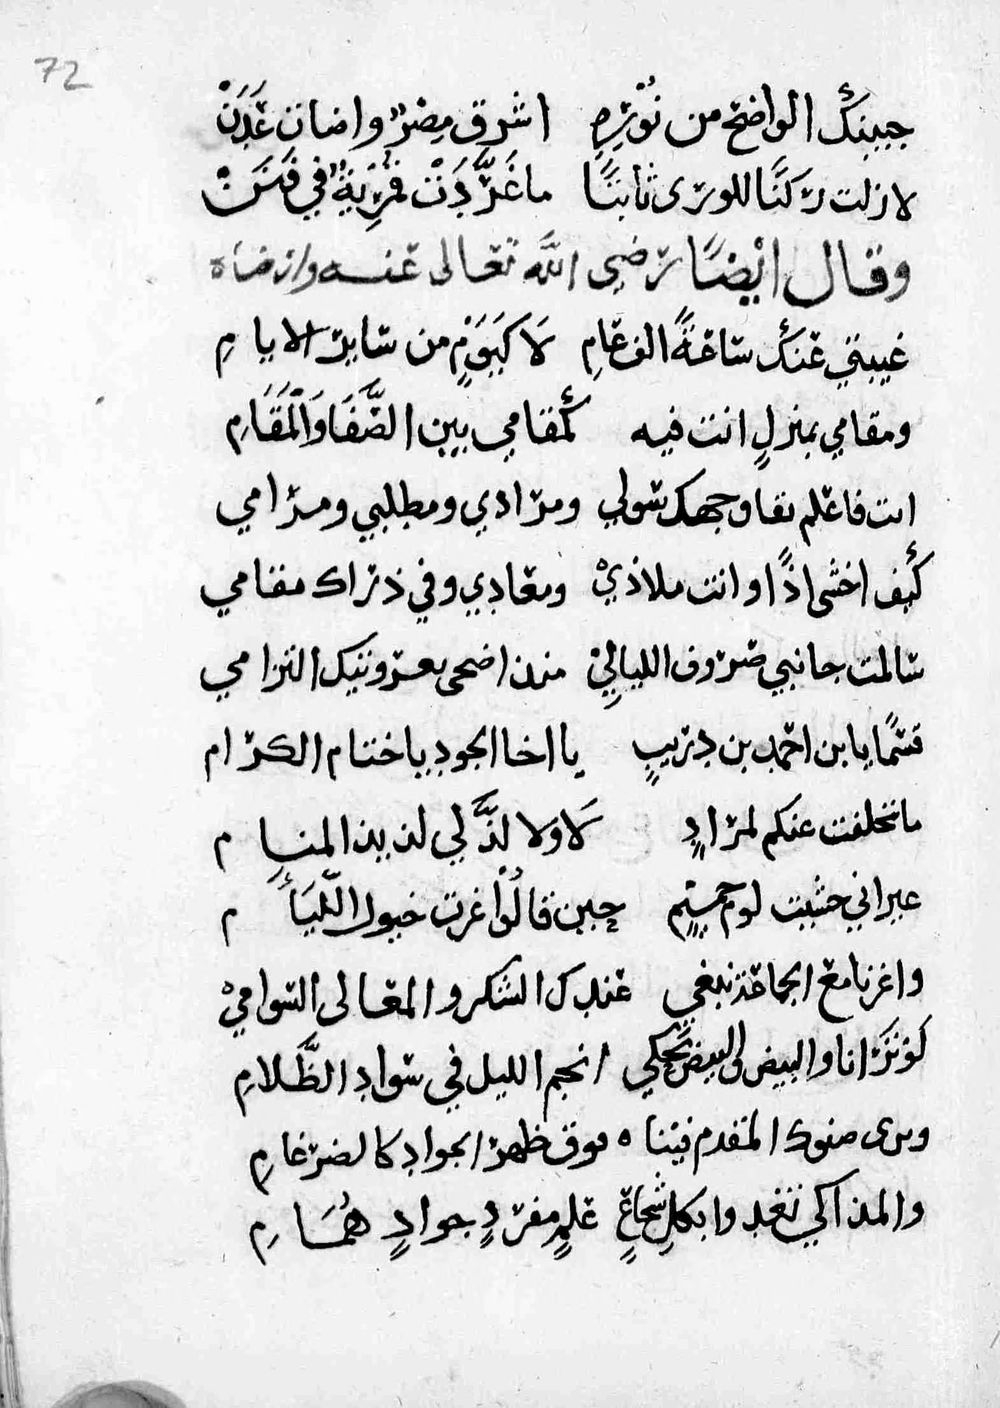 72
جبينك الواضح من نُوْرِهِ اشرق مِصْرٌ واضات عَدَنْ
لا زلت رُكنًا للورى ثابتًا ما غَرَّدَتْ قمْرِيةٌ في فَنَنْ
وقال ايْضًا رضي الله تعالى عنه وارضاه
غيبتي عنك ساعةً الف عامِ لَا كَيَوْمٍ من ساير الايامِ
ومقامي بمنزلٍ انت فيه كمقامي بين الصَّفَا وَالْمَقَامِ
انت فاعلم بقا وجهك سولي ومرادي ومطلبي ومرامي
كيف اخشى اذًا وانت ملاذيْ ومعادي وفي ذراك مقامي
سالمت جانبي صروف الليالِيْ منذ اضحى بعروتيك التزامي
قسمًا يا بن احمد بن دريبٍ يا اخا الجود يا ختام الكرام
ما تخلفت عنكم لمرادٍ لَا ولا لذَّ لي لذيذ المنامِ
غير اني خشيت لوم حميمٍ حين قالُوْا غزت خيول اللِّئامِ
واغزنا مع الجماعة نبغي عندك الشكر والمعالى السواميْ
لو ترانا والبيض والبيض تحكي انجم الليل في سواد الظَّلامِ
وترى صنوك المقدم فينا فوق ظهر الجواد كالضرغامِ
والمذاكي تغدوا بكلِ شجاعٍ علمٍ مفردٍ جوادٍ هُمَامِ